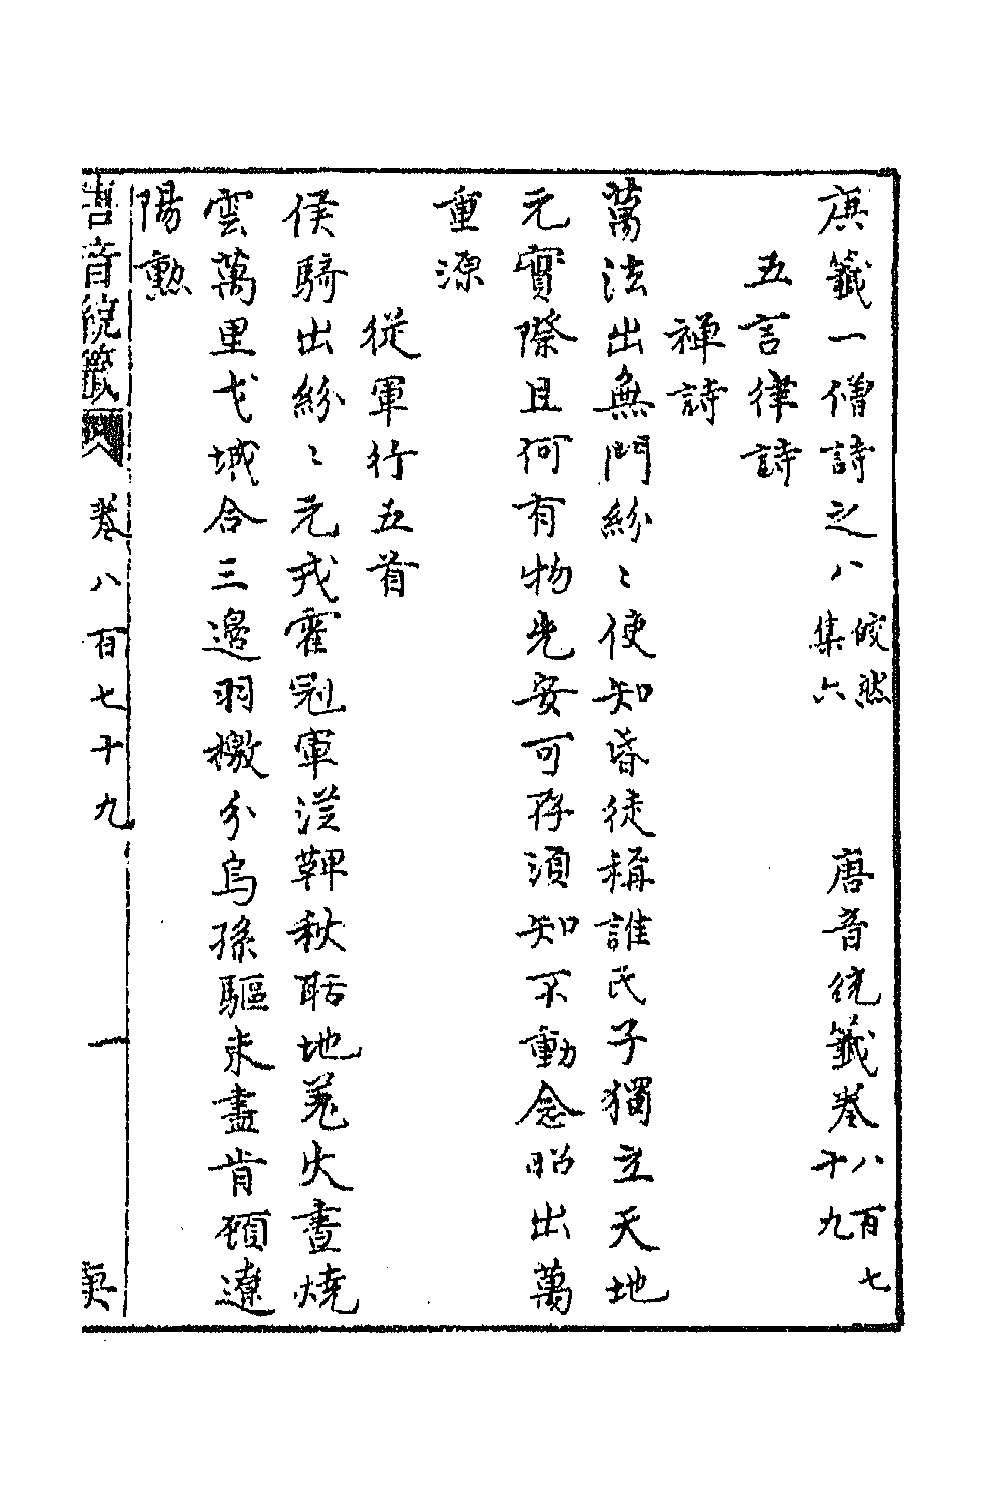 庚籤一僧詩之八 皎然集六 唐音統籤卷八百七十九
五言律詩
禪詩
萬法出無門紛〻使知昏徒稱誰氏子獨立天地
元實際且何有物先安可存須知不動念昭出萬
重源
從軍行五首
侯騎出紛〻元戎霍冠軍漢鞞秋聒地羗火晝燒
雲萬里戈城合三邊羽檄分烏孫驅未盡肯顧遼
陽勲
唐音統籤 卷八百七十九 一 庚